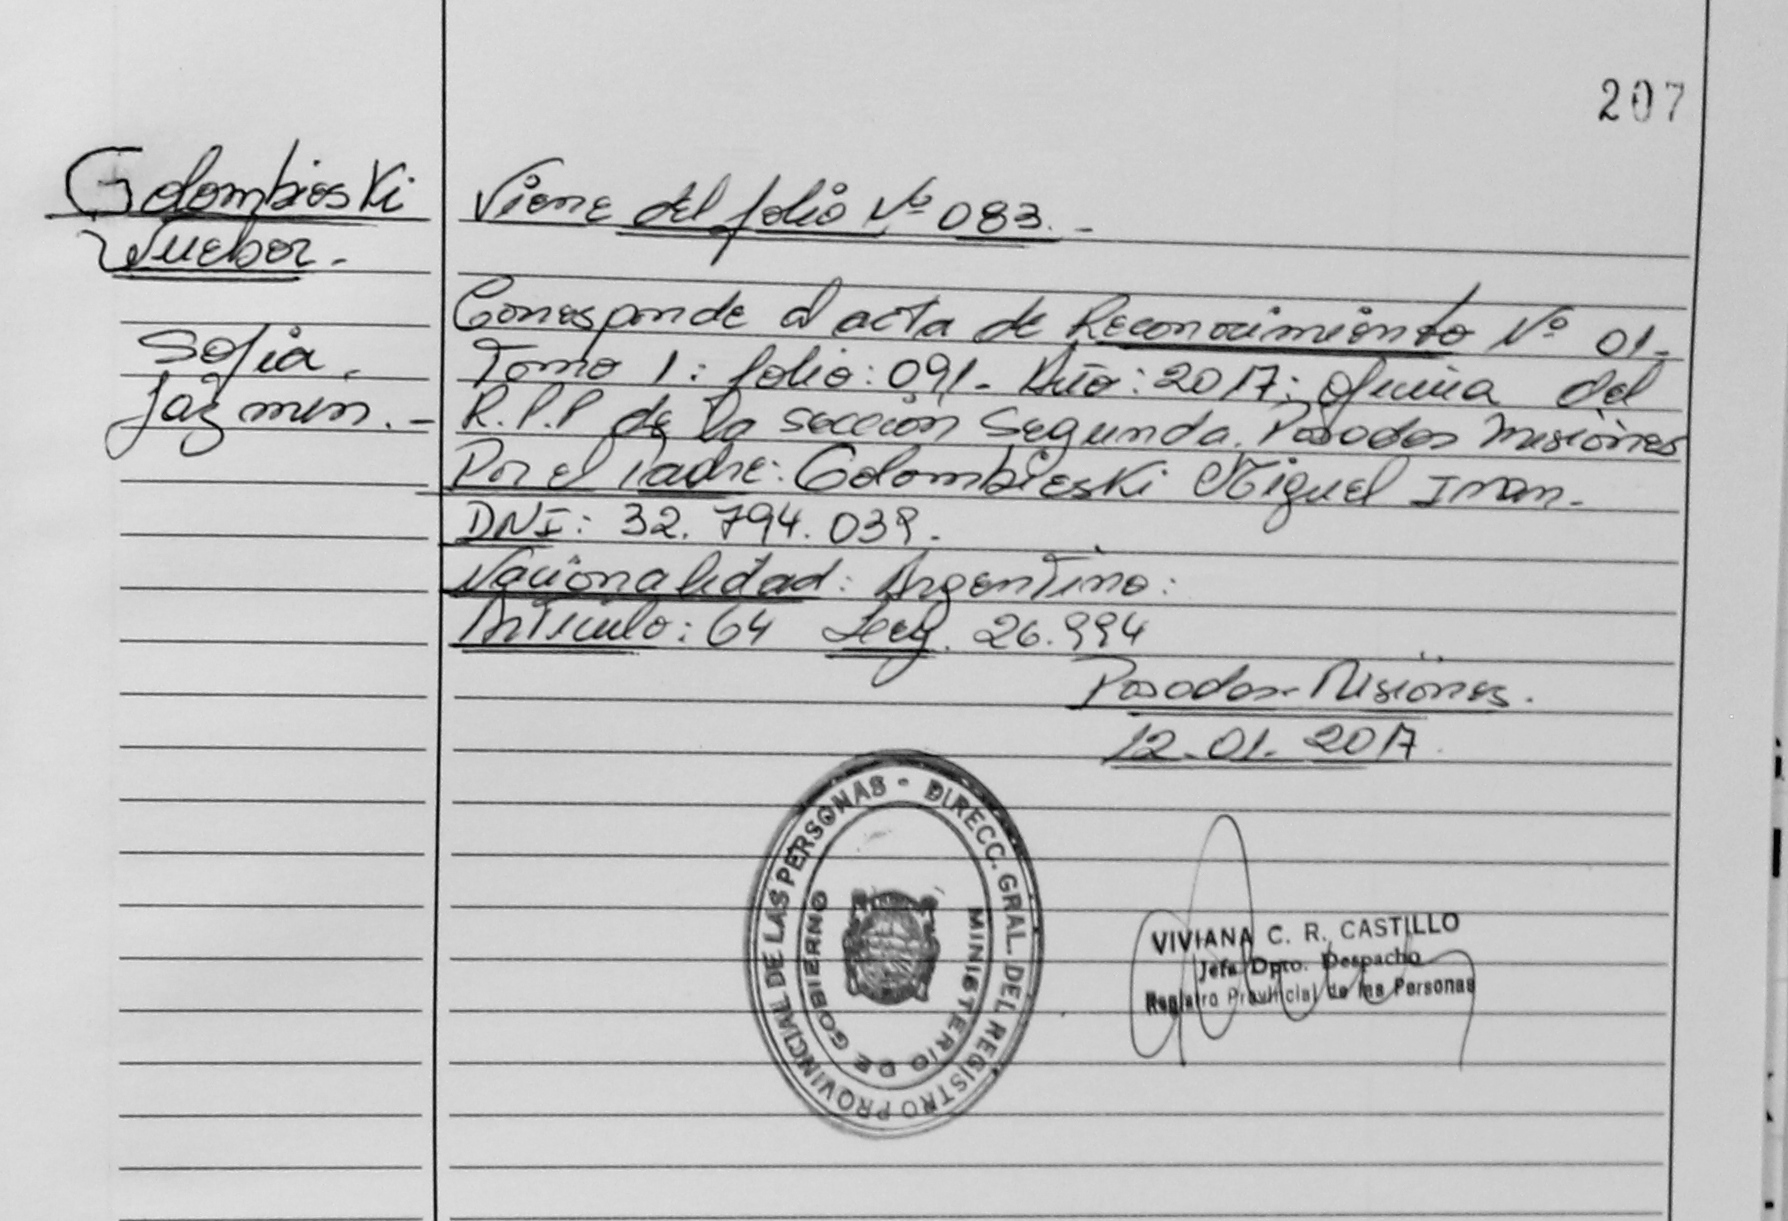 207
Golombieski
Wueber.-
Sofia.
Jazmin.-
Viene del folio Nº 083.-
Corresponde al acta de Reconocimiento Nº 01.-
Tomo 1: folio: 091- Año: 2017: oficina del
R.P.P de la sección Segunda. Posadas Misiones
Por el Padre: Golombieski Miguel Ivan.-
DNI: 32.794.039.-
Nacionalidad: Argentino:
Artículo: 64 Ley. 26.994
Posadas-Misiones.
12-01-2017.
DIRECC. GRAL. DEL REGISTRO PROVINCIAL DE LAS PERSONAS -
MINISTERIO DE GOBIERNO
VIVIANA C. R. CASTILLO
Jefa Dpto. Despacho
Registro Provincial de las Personas